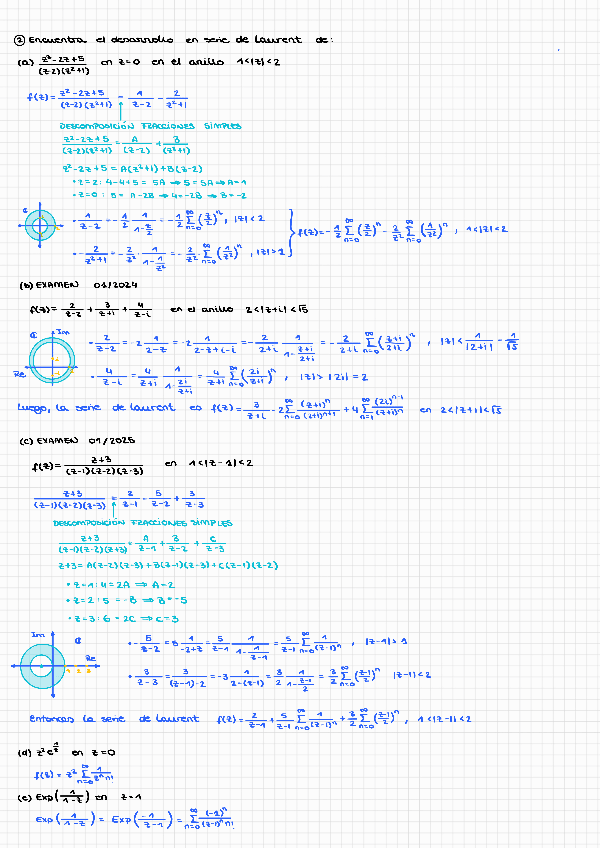 ② Encuentra el desarrollo en serie de Laurent de:
(a) z²-2z+5/(z-2)(z²+1) en z=0 en el anillo 1<|z|<2
f(z)= z²-2z+5/(z-2)(z²+1) = 1/z-2 - 2/z²+1
DESCOMPOSICIÓN FRACCIONES SIMPLES
z²-2z+5/(z-2)(z²+1) = A/(z-2) + B/(z²+1)
z²-2z+5 = A(z²+1)+B(z-2)
• z=2: 4-4+5 = 5A ⇒ 5=5A ⇒ A=1
• z=0: 5 = A-2B ⇒ 4=-2B ⇒ B=-2
ℂ
• 1/z-2 = -1/2 1/1-z/2 = -1/2 ∑n=0^∞ (z/2)ⁿ, |z|<2
f(z)=-1/2 ∑n=0^∞ (z/2)ⁿ - 2/z² ∑n=0^∞ (1/z²)ⁿ, 1<|z|<2
(b) EXAMEN 01/2024
f(z)= 2/z-2 + 3/z+i + 4/z-i en el anillo 2<|z+i|<√5
ℂ Im
Re
• 2/z-2 = -2 1/2-z = -2 1/2-z+i-i = -2/2+i 1/1-z+i/2+i = -2/2+i ∑n=0^∞ (z+i/2+i)ⁿ, |z|<1/|2+i| = 1/√5
• 4/z-i = 4/z+i 1/1-2i/z+i = 4/z+i ∑n=0^∞ (2i/z+i)ⁿ, |z|>|2i|=2
Luego, la serie de Laurent es f(z)= 3/z+i - 2∑n=0^∞ (z+i)ⁿ/(2+i)ⁿ⁺¹ + 4∑n=1^∞ (2i)ⁿ⁻¹/(z+i)ⁿ en 2<|z+i|<√5
(c) EXAMEN 01/2025
f(z)= z+3/(z-1)(z-2)(z-3) en 1<|z-1|<2
z+3/(z-1)(z-2)(z-3) = 2/z-1 - 5/z-2 + 3/z-3
DESCOMPOSICIÓN FRACCIONES SIMPLES
z+3/(z-1)(z-2)(z+3) = A/z-1 + B/z-2 + C/z-3
z+3 = A(z-2)(z-3)+B(z-1)(z-3)+C(z-1)(z-2)
• z=1: 4=2A ⇒ A=2
• z=2: 5=-B ⇒ B=-5
• z=3: 6=2C ⇒ C=3
Im ℂ
Re
1 2 3
|z-1|>1
|z-1|<2
Entonces la serie de Laurent f(z)= 2/z-1 + 5/z-1 ∑n=0^∞ 1/(z-1)ⁿ + 3/2 ∑n=0^∞ (z-1/2)ⁿ, 1<|z-1|<2
(d) z²e^1/z en z=0
f(z) = z² ∑n=0^∞ 1/zⁿn!
(e) Exp(1/1-z) en z=1
Exp(1/1-z) = Exp(-1/z-1) = ∑n=0^∞ (-1)ⁿ/(z-1)ⁿn!